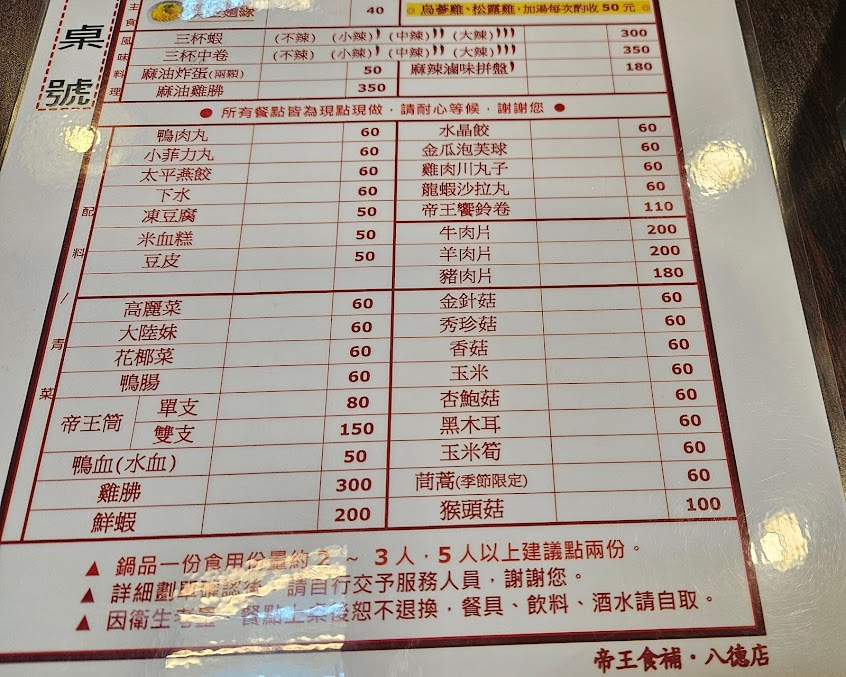 桌號
主食
風味料理
麵線 40
烏參雞、松露雞，加湯每次酌收50元
三杯蝦 (不辣) (小辣) (中辣) (大辣) 300
三杯中卷 (不辣) (小辣) (中辣) (大辣) 350
麻油炸蛋(兩顆) 50 麻辣滷味拼盤 180
麻油雞胇 350
● 所有餐點皆為現點現做，請耐心等候，謝謝您 ●
配料/青菜
鴨肉丸 60 水晶餃 60
小菲力丸 60 金瓜泡芙球 60
太平燕餃 60 雞肉川丸子 60
下水 60 龍蝦沙拉丸 60
凍豆腐 50 帝王響鈴卷 110
米血糕 50 牛肉片 200
豆皮 50 羊肉片 200
豬肉片 180
高麗菜 60 金針菇 60
大陸妹 60 秀珍菇 60
花椰菜 60 香菇 60
鴨腸 60 玉米 60
帝王筒 單支 80 杏鮑菇 60
雙支 150 黑木耳 60
鴨血(水血) 50 玉米筍 60
雞胇 300 茼蒿(季節限定) 60
鮮蝦 200 猴頭菇 100
▲ 鍋品一份食用份量約2 ~ 3人，5人以上建議點兩份。
▲ 詳細劃單確認後，請自行交予服務人員，謝謝您。
▲ 因衛生考量，餐點上桌後恕不退換，餐具、飲料、酒水請自取。
帝王食補·八德店